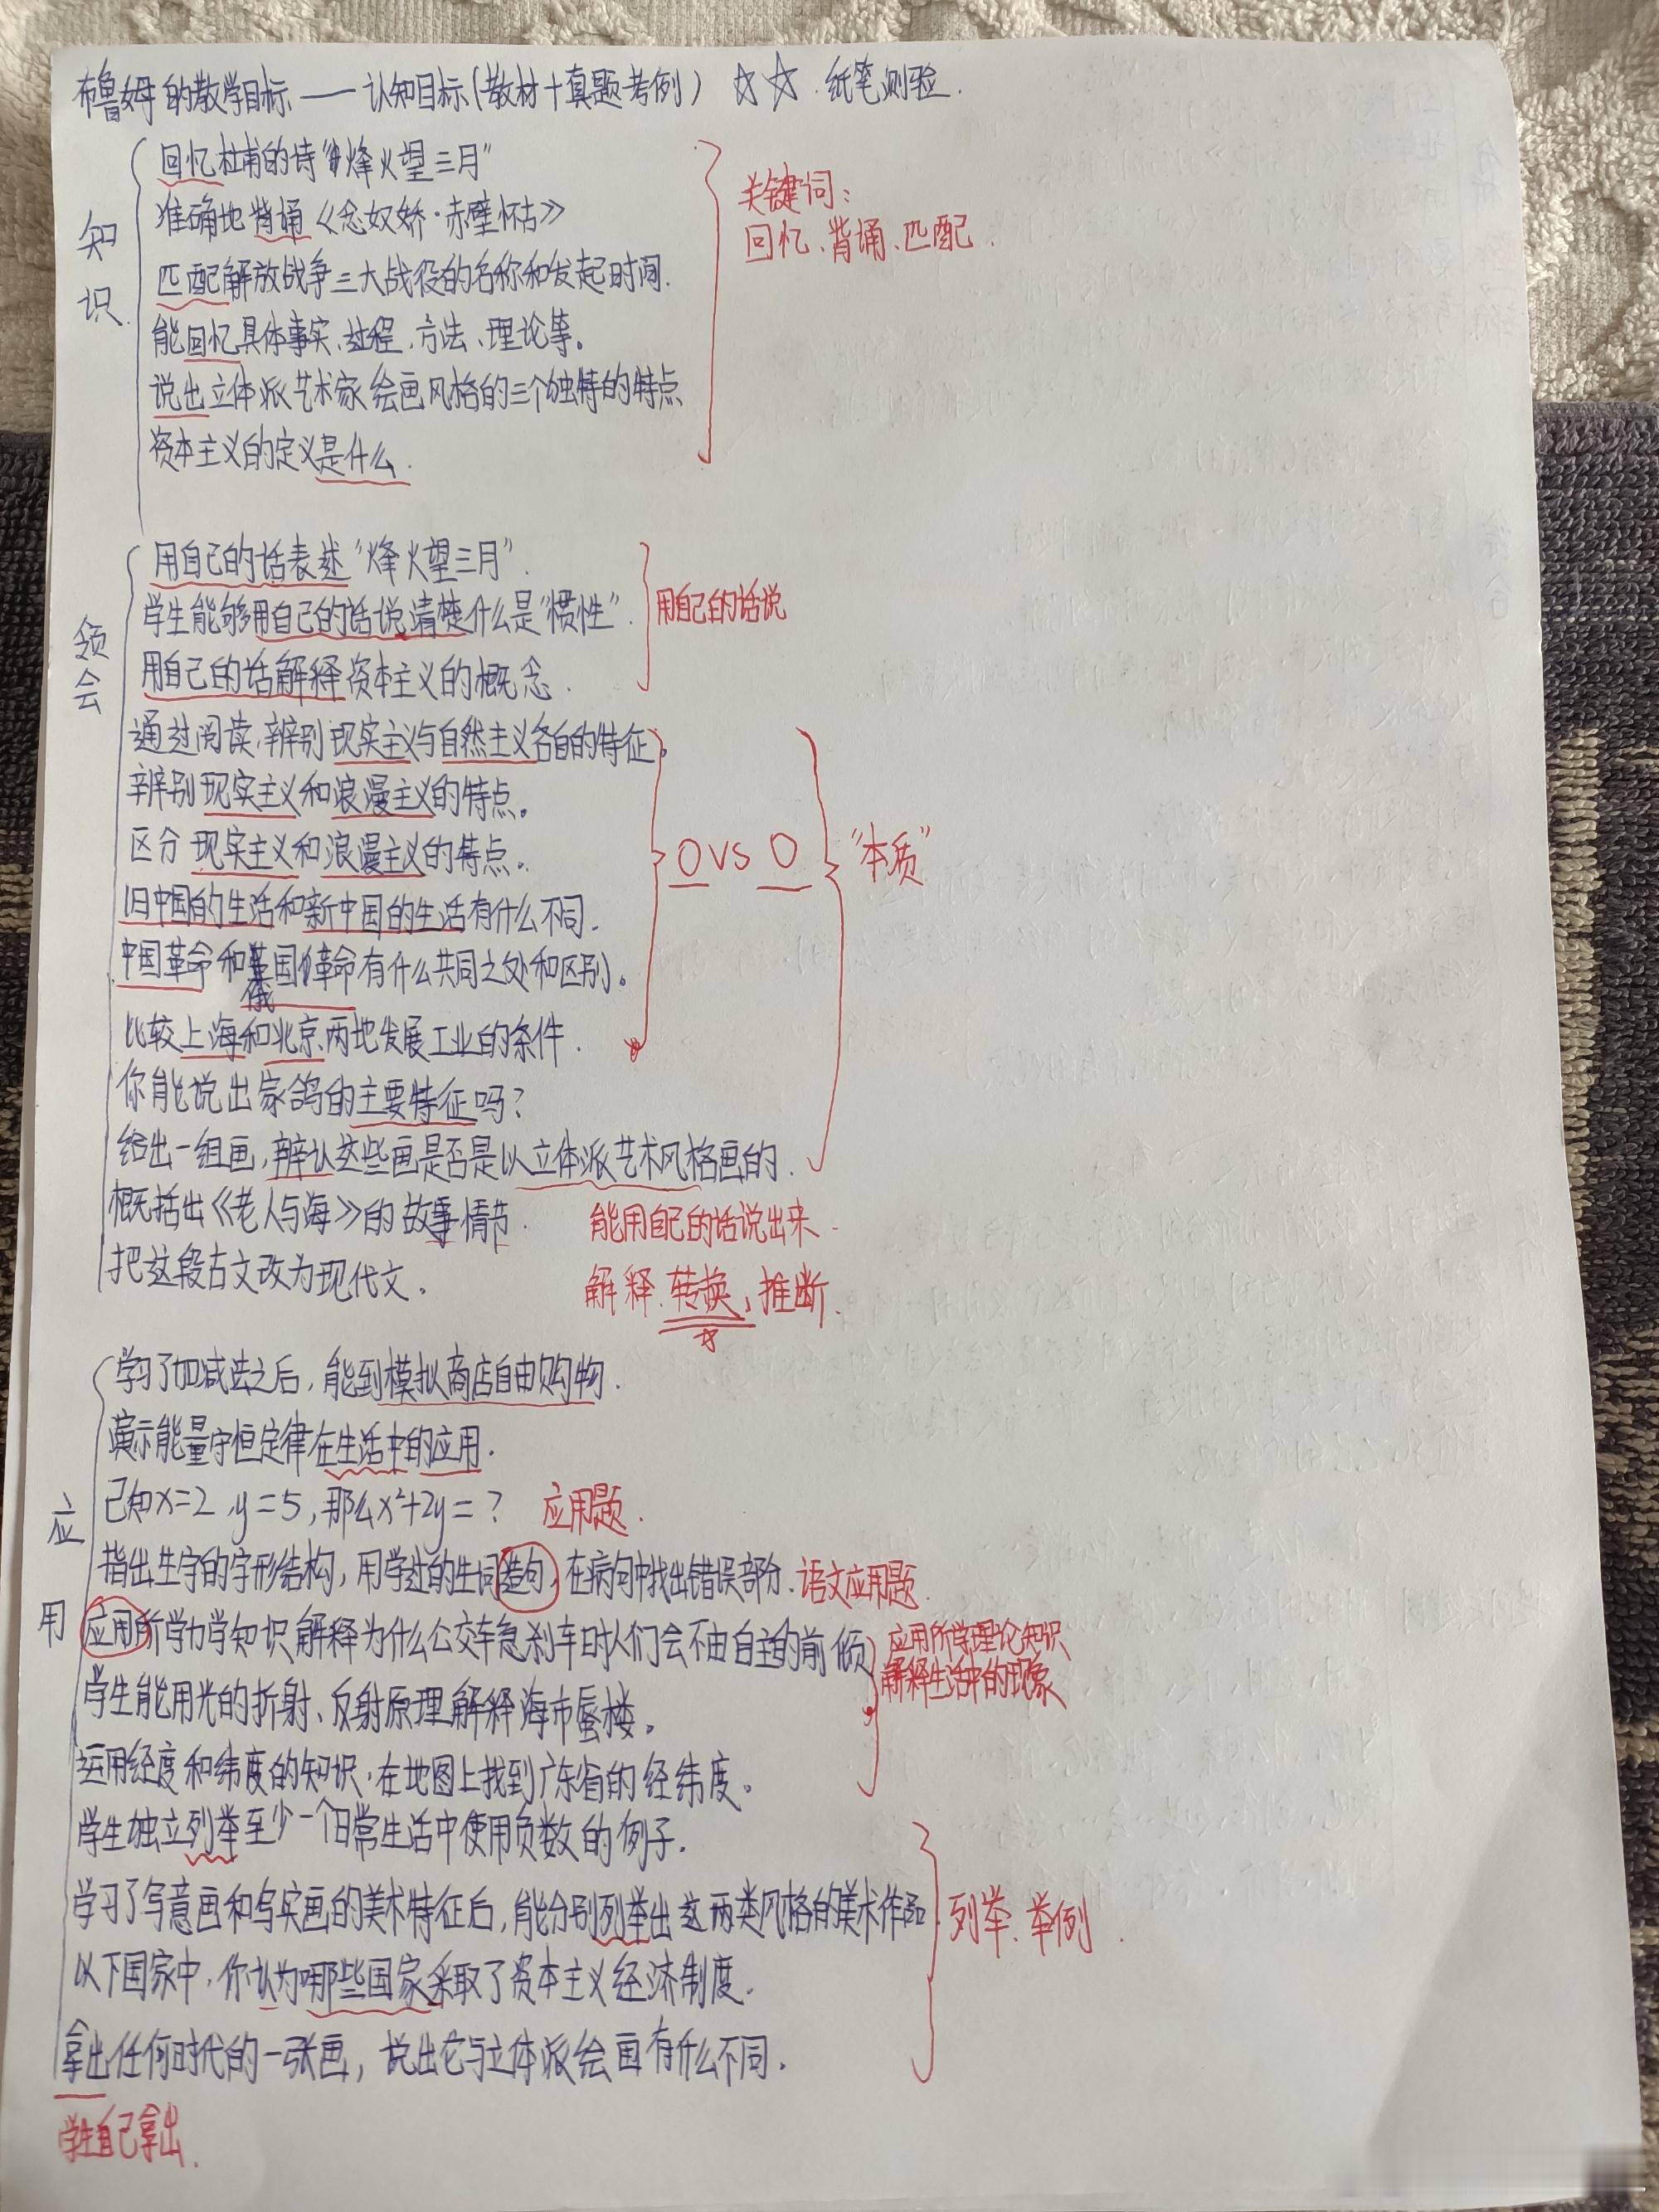 布鲁姆的教学目标——认知目标(教材+真题考例) ☆☆.纸笔测验.
知识
回忆杜甫的诗"烽火望三月"
准确地背诵《念奴娇·赤壁怀古》
匹配解放战争三大战役的名称和发起时间.
能回忆具体事实、过程、方法、理论等。
说出立体派艺术家绘画风格的三个独特的特点
资本主义的定义是什么.
关键词:
回忆、背诵、匹配.
领会
用自己的话表述"烽火望三月".
学生能够用自己的话说清楚什么是"惯性".
用自己的话解释资本主义的概念.
用自己的话说
通过阅读,辨别现实主义与自然主义各自的特征。
辨别现实主义和浪漫主义的特点。
区分现实主义和浪漫主义的特点。
旧中国的生活和新中国的生活有什么不同.
中国革命和俄国革命有什么共同之处和区别。
比较上海和北京两地发展工业的条件.
你能说出家鸽的主要特征吗?
给出一组画,辨认这些画是否是以立体派艺术风格画的.
O VS O
"本质"
概括出《老人与海》的故事情节.
把这段古文改为现代文。
能用自己的话说出来.
解释、转换、推断.
☆
应用
学习了加减法之后,能到模拟商店自由购物.
演示能量守恒定律在生活中的应用.
已知x=2,y=5,那么x²+2y=? 应用题.
指出生字的字形结构,用学过的生词造句,在病句中找出错误部分.语文应用题.
应用所学力学知识解释为什么公交车急刹车时人们会不由自主的前倾
学生能用光的折射、反射原理解释海市蜃楼。
运用经度和纬度的知识,在地图上找到广东省的经纬度。
应用所学理论知识
解释生活中的现象
学生独立列举至少一个日常生活中使用负数的例子.
学习了写意画和写实画的美术特征后,能分别列举出这两类风格的美术作品.
以下国家中,你认为哪些国家采取了资本主义经济制度.
拿出任何时代的一张画,说出它与立体派绘画有什么不同.
列举、举例.
学生自己拿出.